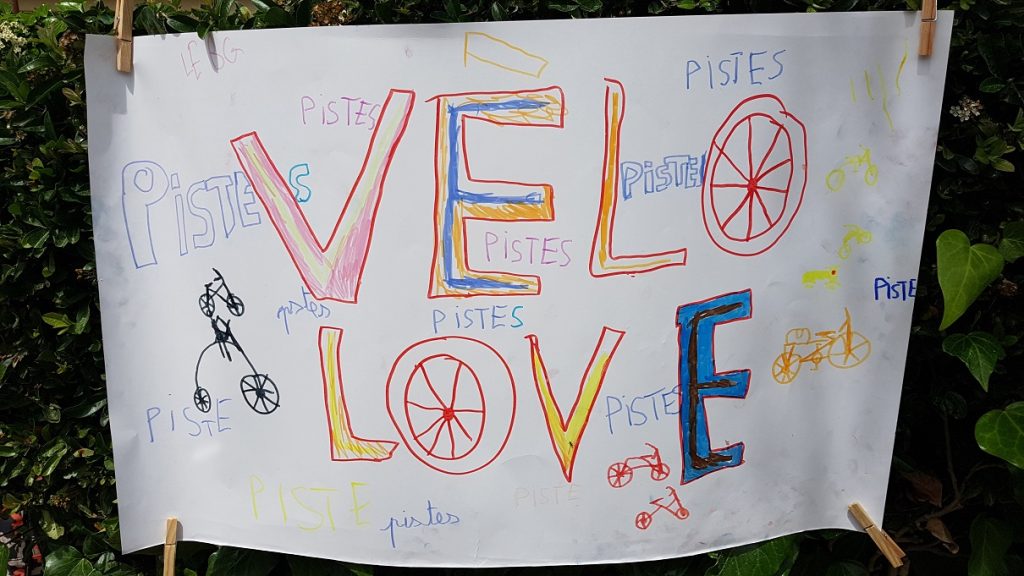 PISTES
PISTES
VÈLO
PISTES
PISTE
PISTES
PISTE
pistes
PISTES
LOVE
PISTE
PISTE
PISTE
PISTE
pistes